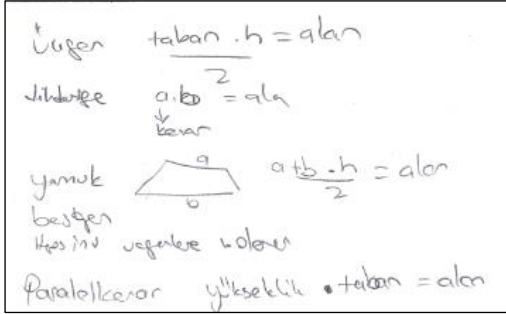 Üçgen taban . h = alan
2
a.b = ala
↓
kenar
yamuk a a+b . h = alan
b 2
beşgen
Hepsini üçgenlere
Paralelkenar yükseklik . taban = alan